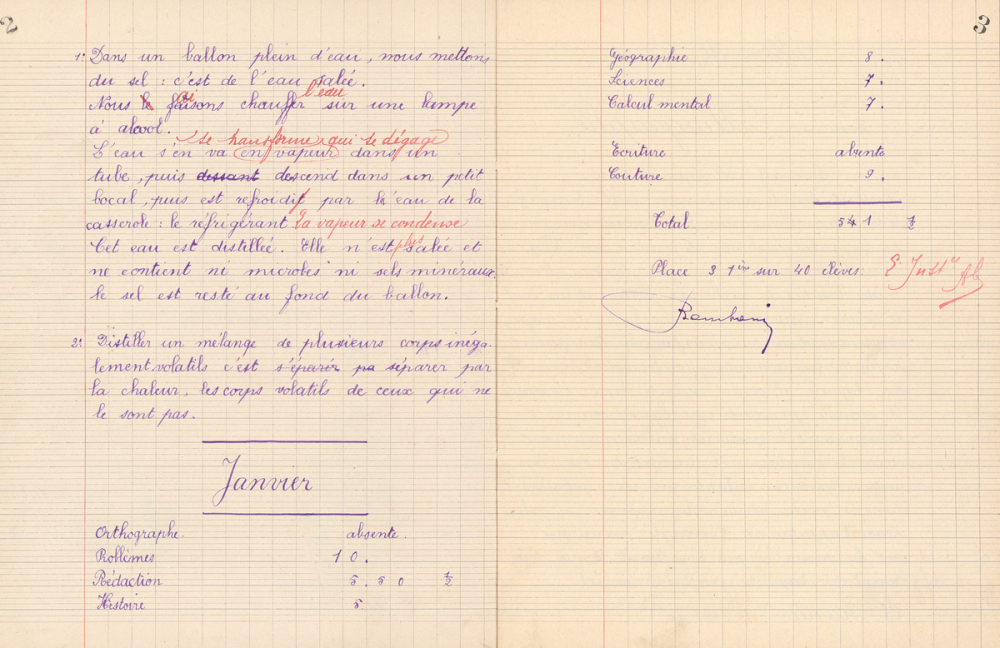 2
1º Dans un ballon plein d'eau, nous mettons
du sel : c'est de l'eau salée.
l'eau
Nous faisons chauffer sur une lampe
à alcool.
se transforme qui se dégage
L'eau s'en va en vapeur dans un
tube, puis dessant descend dans un petit
bocal, puis est refroidit par l'eau de la
casserole : le réfrigérant la vapeur se condense
Cet eau est distillée. Elle n'est plus salée et
ne contient ni microbes ni sels minéraux
le sel est resté au fond du ballon.
2º Distiller un mélange de plusieurs corps inéga-
lement volatils c'est séparer par
la chaleur, les corps volatils de ceux qui ne
le sont pas.
Janvier
Orthographe. absente.
Problèmes 10.
Rédaction 5.50 ½
Histoire 5
3
Géographie 8.
Sciences 7.
Calcul mental 7.
Ecriture absente
Couture 9.
Total 541 ½
Place 3 1ère sur 40 élèves.